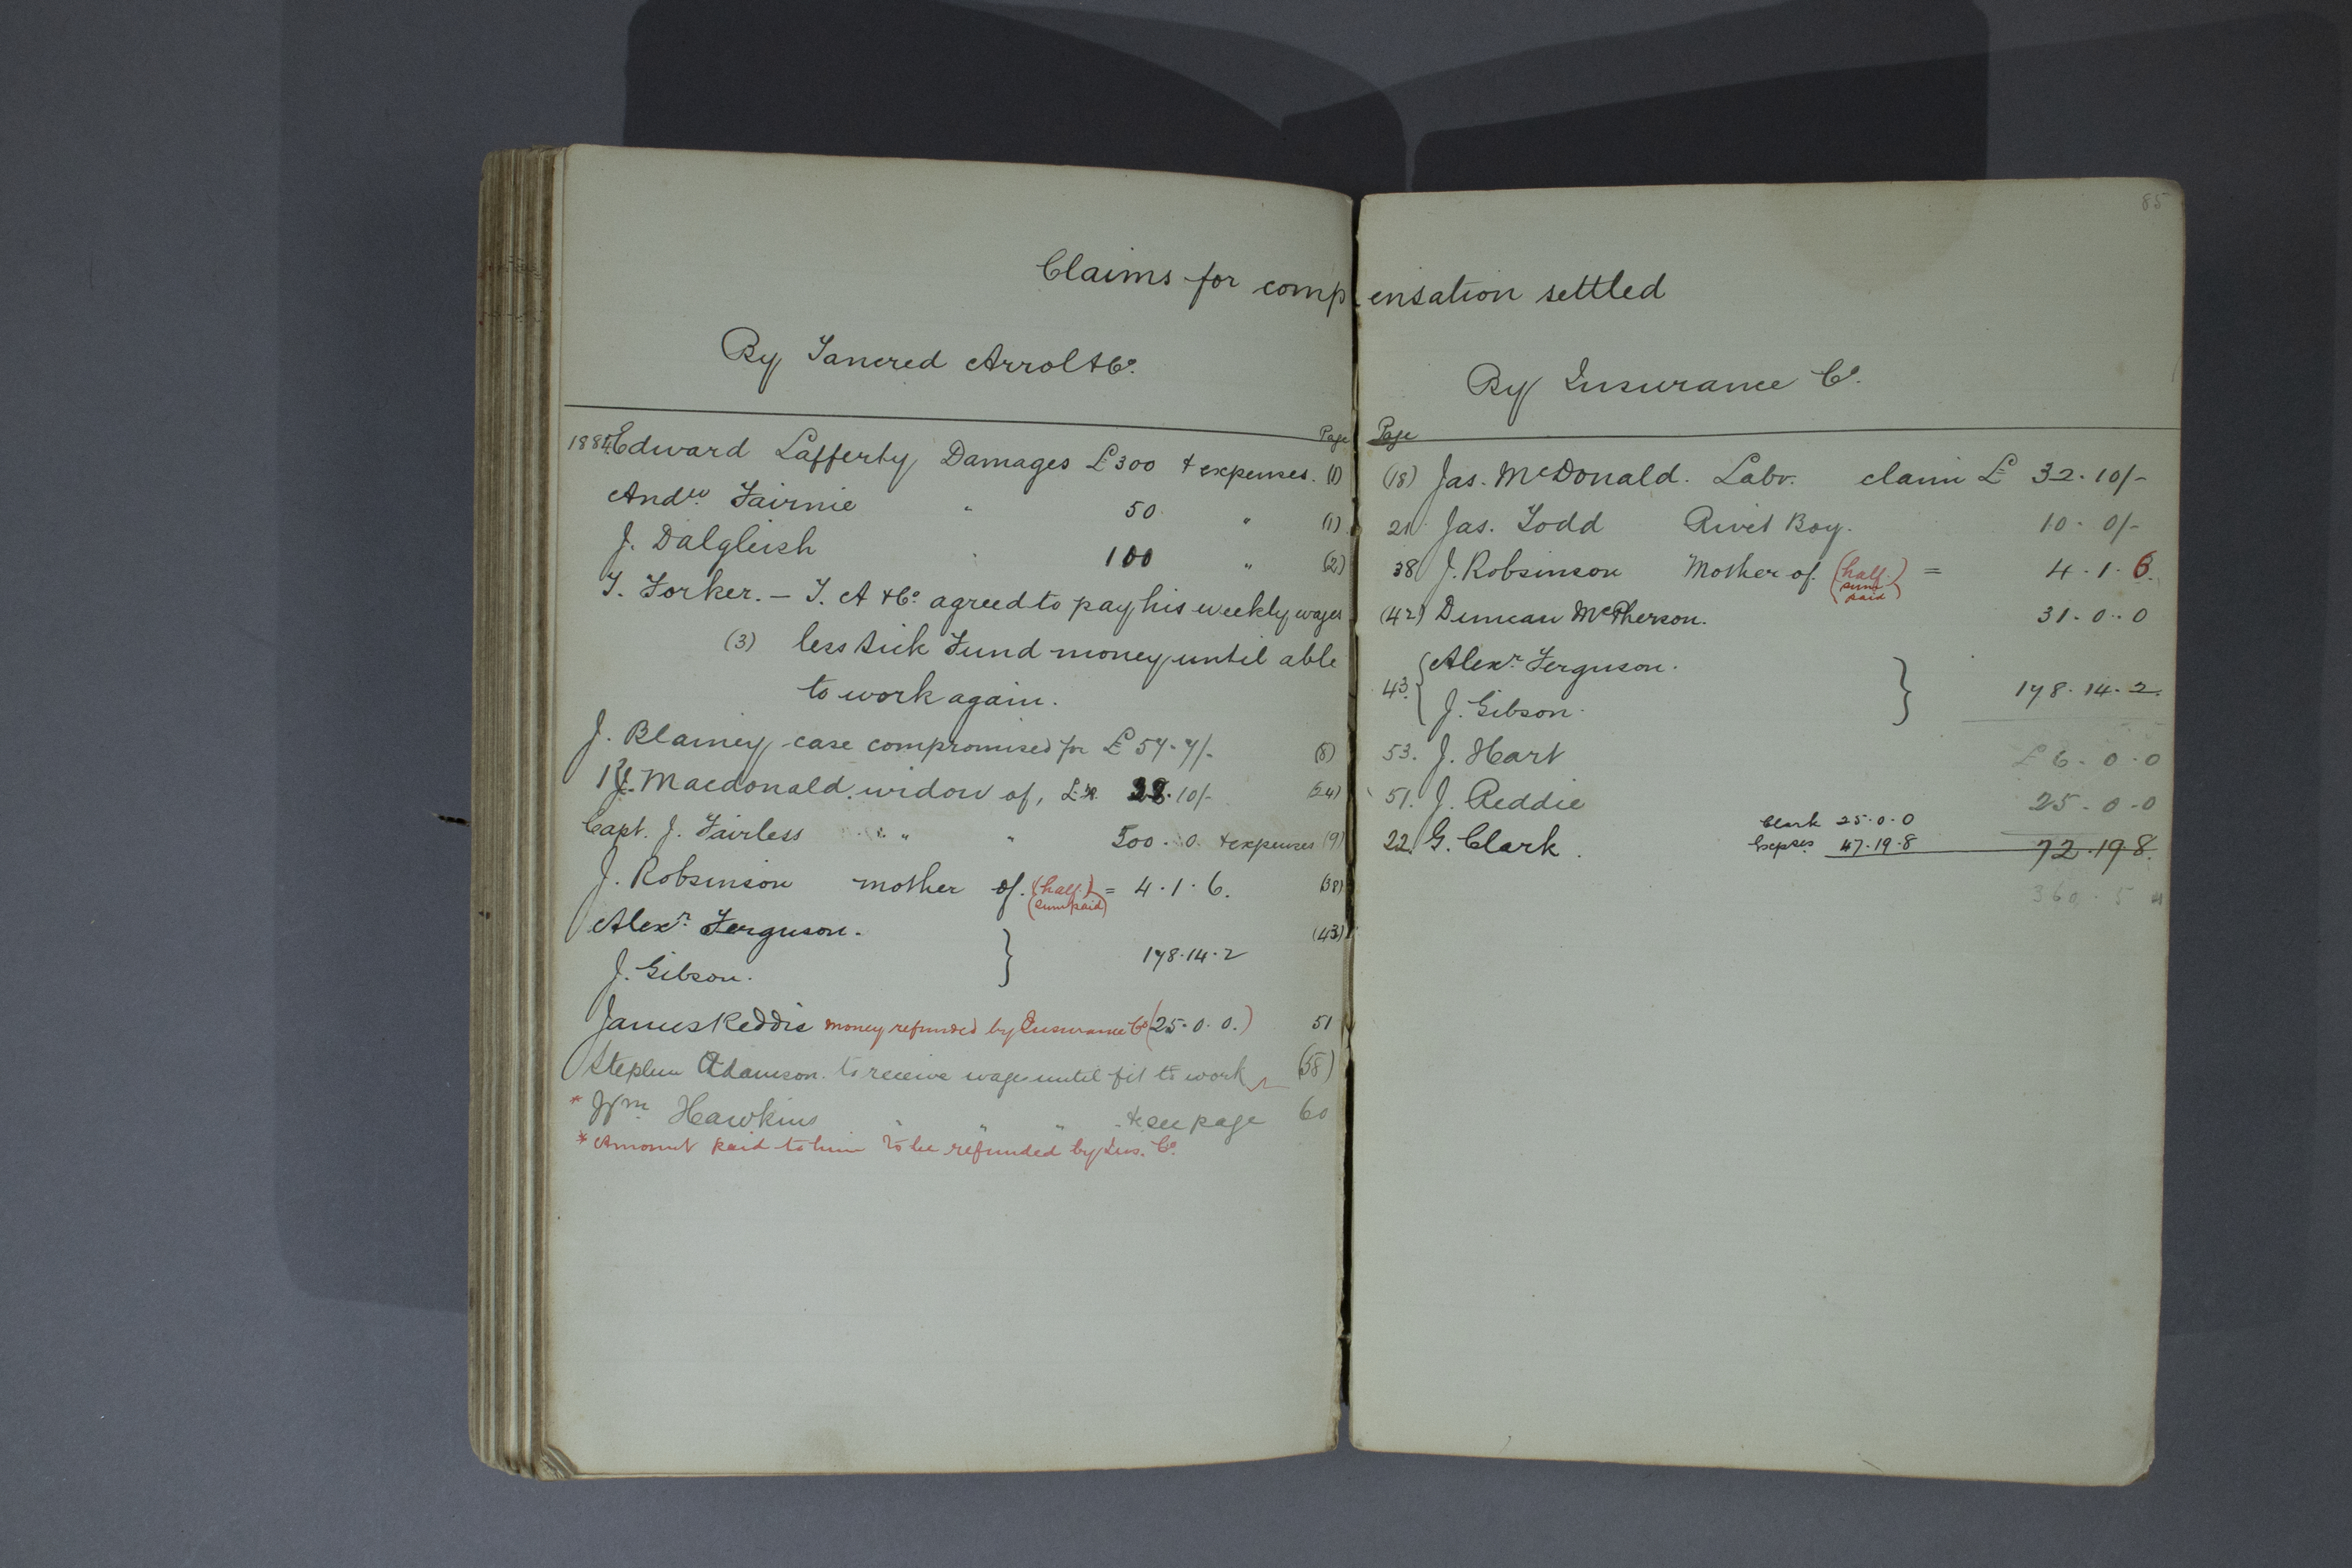 85
Claims for compensation settled
By Tancred Arrol & Co.
Page
1884 Edward Lafferty Damages £300 & expenses. (1)
Andw Fairnie " 50 " (1)
J. Dalgleish " 100 " (2)
T. Forker. — T. A & Co. agreed to pay his weekly wages
(3) less Sick Fund money until able
to work again.
J. Blainey case compromised for £57.7/-
R. Macdonald. widow of, 38.10/- (24)
Capt. J. Fairless " " 500.0. & expenses (9)
J. Robsinson mother of. (half sum paid) = 4.1.6. (38)
Alexr. Ferguson. (43)
J. Gibson. } 178.14.2
James Reddie money refunded by Insurance Co (25.0.0.) 51
Stephen Adamson. to receive wages until fit to work (58)
* Wm Hawkins " " " & see page 60
* Amount paid to him to be refunded by Ins. Co.
By Insurance Co.
Page
(18) Jas. McDonald. Labr. claim £ 32.10/-
21 Jas. Todd Rivet Boy. 10.0/-
38 J. Robsinson Mother of. (half sum paid) = 4.1.6.
(42) Duncan McPherson. 31.0.0
43. { Alexr. Ferguson.
J. Gibson. } 178.14.2.
53. J. Hart £6.0.0
51. J. Reddie 25.0.0
Clark 25.0.0
22. G. Clark. Expses 47.19.8 72.19.8.
360.5